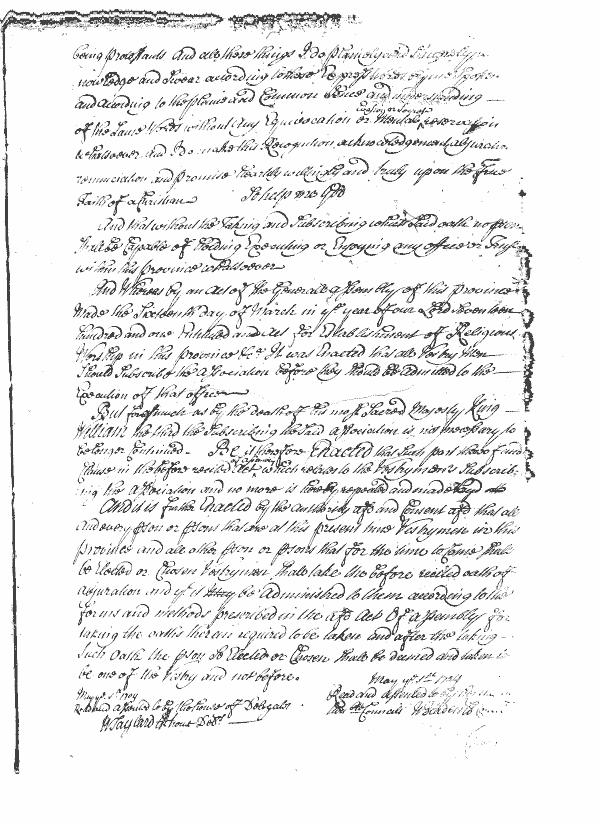 being protestants And all these things I do plainly and sincerely
nowledge and swear according to these words
and according to the plaine and Common sence and understanding
of the same Words without any Equivocation or Mentall reservation
evasion or secret
whatsoever And I do make this Recognition acknowledgement abjuration
renunciation and promise heartily willingly and truly upon the true
faith of a christian So help me God
And that without the Taking and subscribing which said oath no person
shall be Capable of holding Executing or Enjoying any office or
within this province whatsoever
And Whereas by an act of the Generall assembly of this province
made the Sixteenth day of March in ye year of our Lord Seventeen
hundred and one Entituled an Act for Establishment of Religious
Worship in this province &c It was Enacted that all Vestry Men
should Subscribe the association before they should be admitted to the
Execution of that office
But forasmuch as by the death of his most Sacred Majesty King
William the third the Subscribing the said association is not necessary to
be longer Continued Be it therefore Enacted that such part
Clause in the before recited Act which relates to the Vestrymens Subscrib
ing the association and no more is hereby repealed and made Voyd
And it is further Enacted by the authority afd and Consent afd that all
and every pson or psons that are at this present time Vestrymen in this
province and all other pson or psons that for the time to Come shall
be Elected or Chosen Vestrymen shall take the before recited oath of
abjuration and yt it be Administred to them according to the
forms and methods prescribed in the afd Act Of assembly for
taking the oaths therein required to be taken and after the taking
such Oath the pson so Elected or Chosen shall be deemed and taken to
be one of the Vestry and not before.
May ye 1st 1704
Read and assented to by the house of Delegates
W Taylard
May ye 1st 1704
Read and assented to by